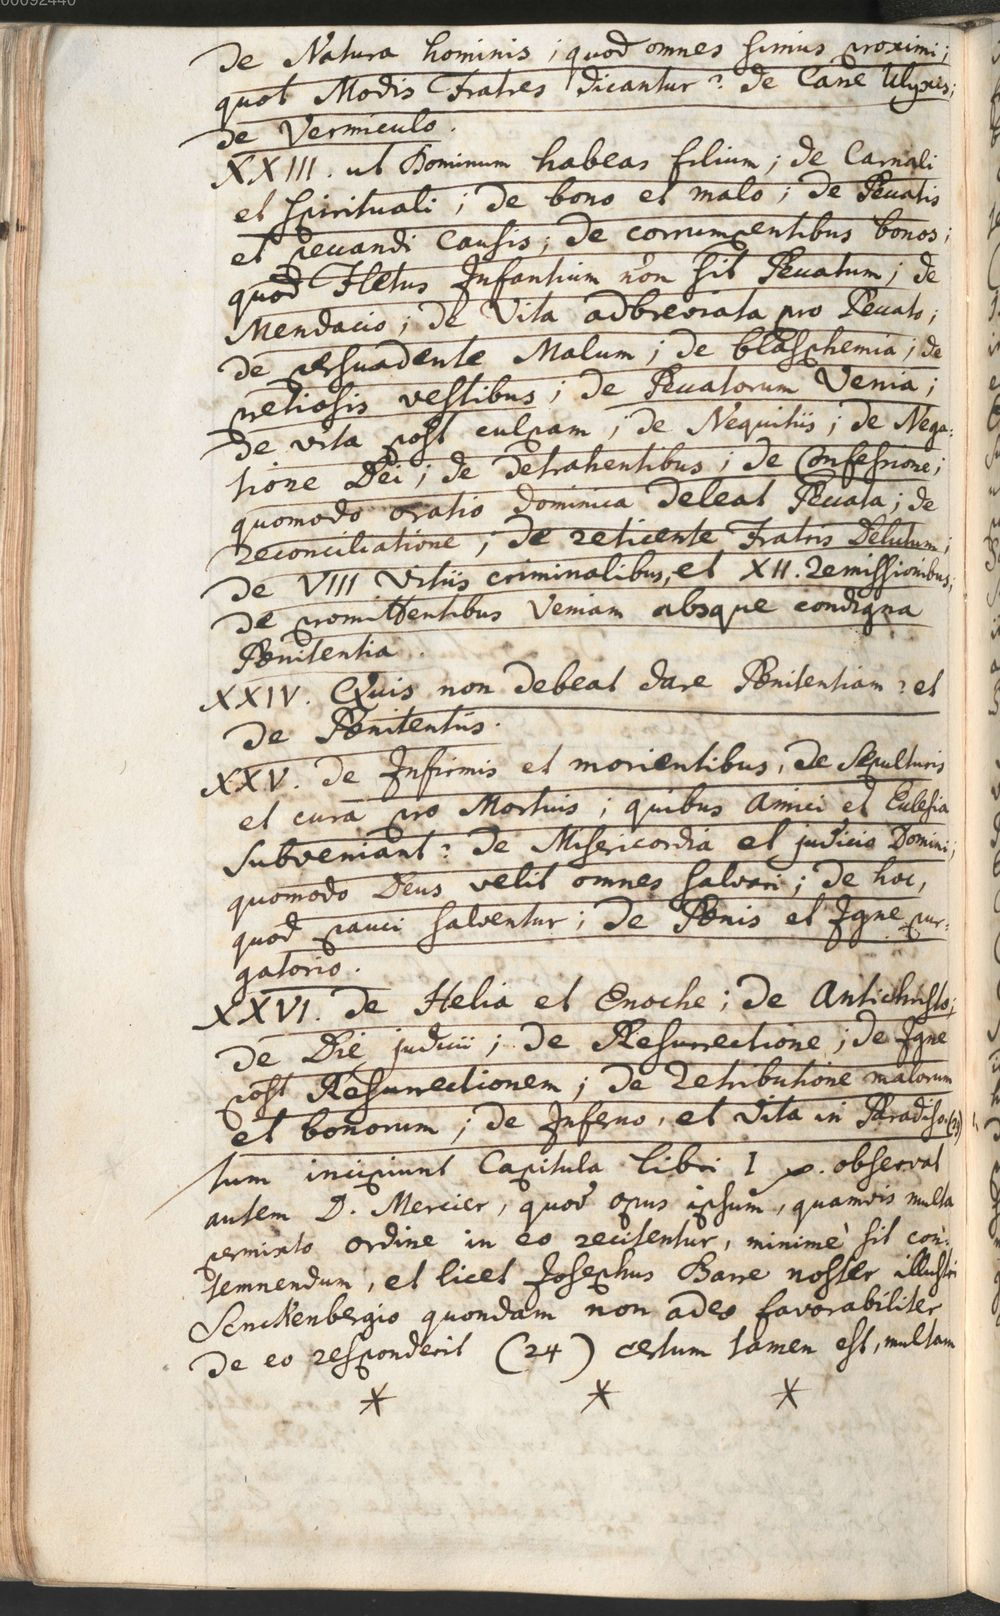 00092440
De Natura hominis ; quod omnes simus proximi ;
quot Modis Fratres dicantur ? de Cane Ulyxis ;
de Vermiculo .
XXIII . ut Dominum habeas filium ; de Carnali
et spirituali ; de bono et malo ; de Peccatis
et peccandi Causis ; de corrumpentibus bonos ;
quod Fletus Infantium non sit Peccatum ; de
Mendacio ; de Vita adbreviata pro Peccato ;
de persuadente Malum ; de blasphemia ; de
pretiosis vestibus ; de Peccatorum Venia ;
de vita post culpam ; de Nequitiis ; de Nega=
tione Dei ; de detrahentibus ; de Confessione ;
quomodo oratio dominica deleat Peccata ; de
reconciliatione ; de reticente Fratris Delictum ;
de VIII Vitiis criminalibus, et XII . remissionibus ;
de promittentibus Veniam absque condigna
Pœnitentia .
XXIV . Quis non debeat dare Pœnitentiam ? et
de Pœnitentiis .
XXV . de Infirmis et morientibus , de Sepulturis
et cura pro Mortuis ; quibus Amici et Ecclesia
subveniant ? de Misericordia et judicio Domini ;
quomodo Deus velit omnes salvari ; de hoc ,
quod pauci salventur ; de Pœnis et Igne pur=
gatorio .
XXVI . de Helia et Enoche ; de Antichristo ;
de Die judicii ; de Resurrectione ; de Igne
post Resurrectionem ; de retributione malorum
et bonorum ; de Inferno , et Vita in Paradiso.
tum incipiunt Capitula libri I p. observat
autem D. Mercier , quod opus ipsum , quamvis multa
permixto ordine in eo recitentur , minimè sit con=
temnendum , et licet Josephus Barre noster illustri
Senckenbergio quondam non adeo favorabiliter
de eo responderit (24) certum tamen est, multam
* * *